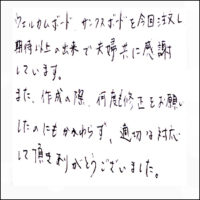 ウェルカムボード サンクスボードを今回注文し
期待以上の出来で夫婦共に感謝
しています。
また、作成の際、何度も修正をお願い
したのにもかかわらず、適切な対応
して頂きありがとうございました。